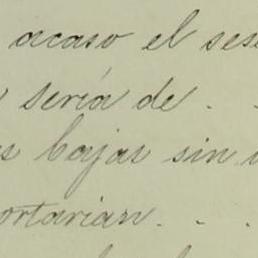 acaso el ses
sería de . .
s bajas sin
ortarian . . .